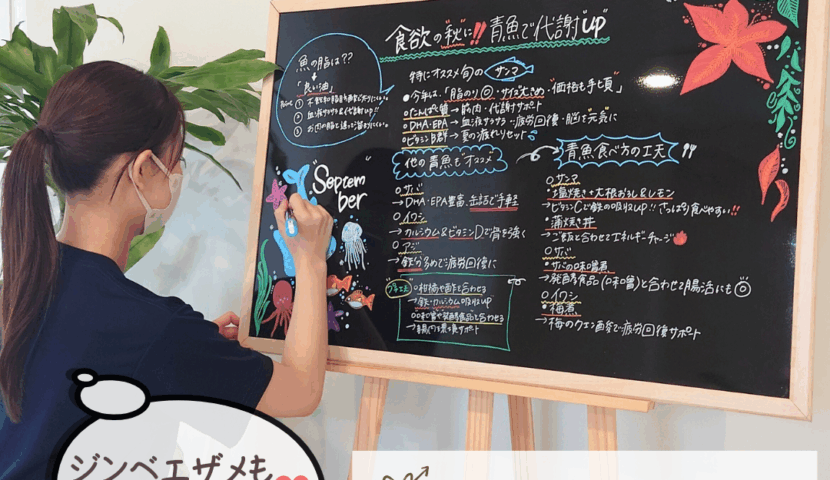 食欲の"秋"に!! 青魚で代謝"up"
魚の脂は??
↓
「良い油」
特にオススメ旬の サンマ
●今年は、「脂のり◎・サイズ大きめ・価格も手頃」
○たんぱく質→筋肉・代謝サポート
○DHA・EPA→血液サラサラ・疲労回復・脳を元気に
○ビタミンB群→夏の疲れリセット
他の青魚も"オススメ"
○サバ
→DHA・EPA豊富、缶詰で手軽
○イワシ
→カルシウム&ビタミンDで骨を強く
○アジ
→鉄分多めで疲労回復に
○柑橘や酢と合わせる
→鉄・カルシウム吸収up
青魚食べ方の工夫
○サンマ
・塩焼き+大根おろし&レモン
→ビタミンCで鉄の吸収up!!さっぱり食べやすい!!
・蒲焼き丼
→ご飯と合わせてエネルギーチャージ
○サバ
・サバの味噌煮
→発酵食品(味噌)と合わせて腸活にも◎
○イワシ
・梅煮
→梅のクエン酸で疲労回復サポート
"Septem
ber"
ジンベエザメも